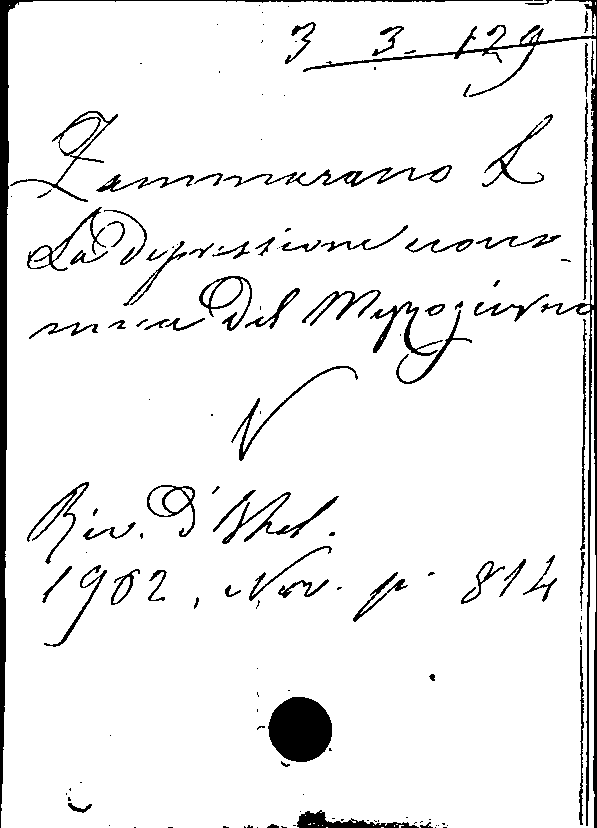 3 3. 129
Zammarano L
La Depressione econo-
mica del Mezzogiorno
V
Riv. d'Ital.
1902, Nov. p. 814